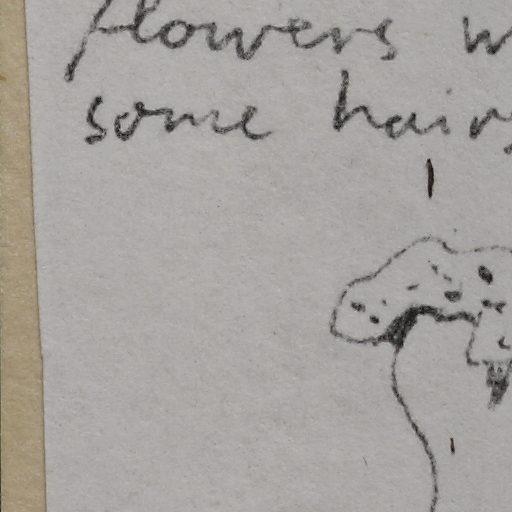 flowers
some hairs